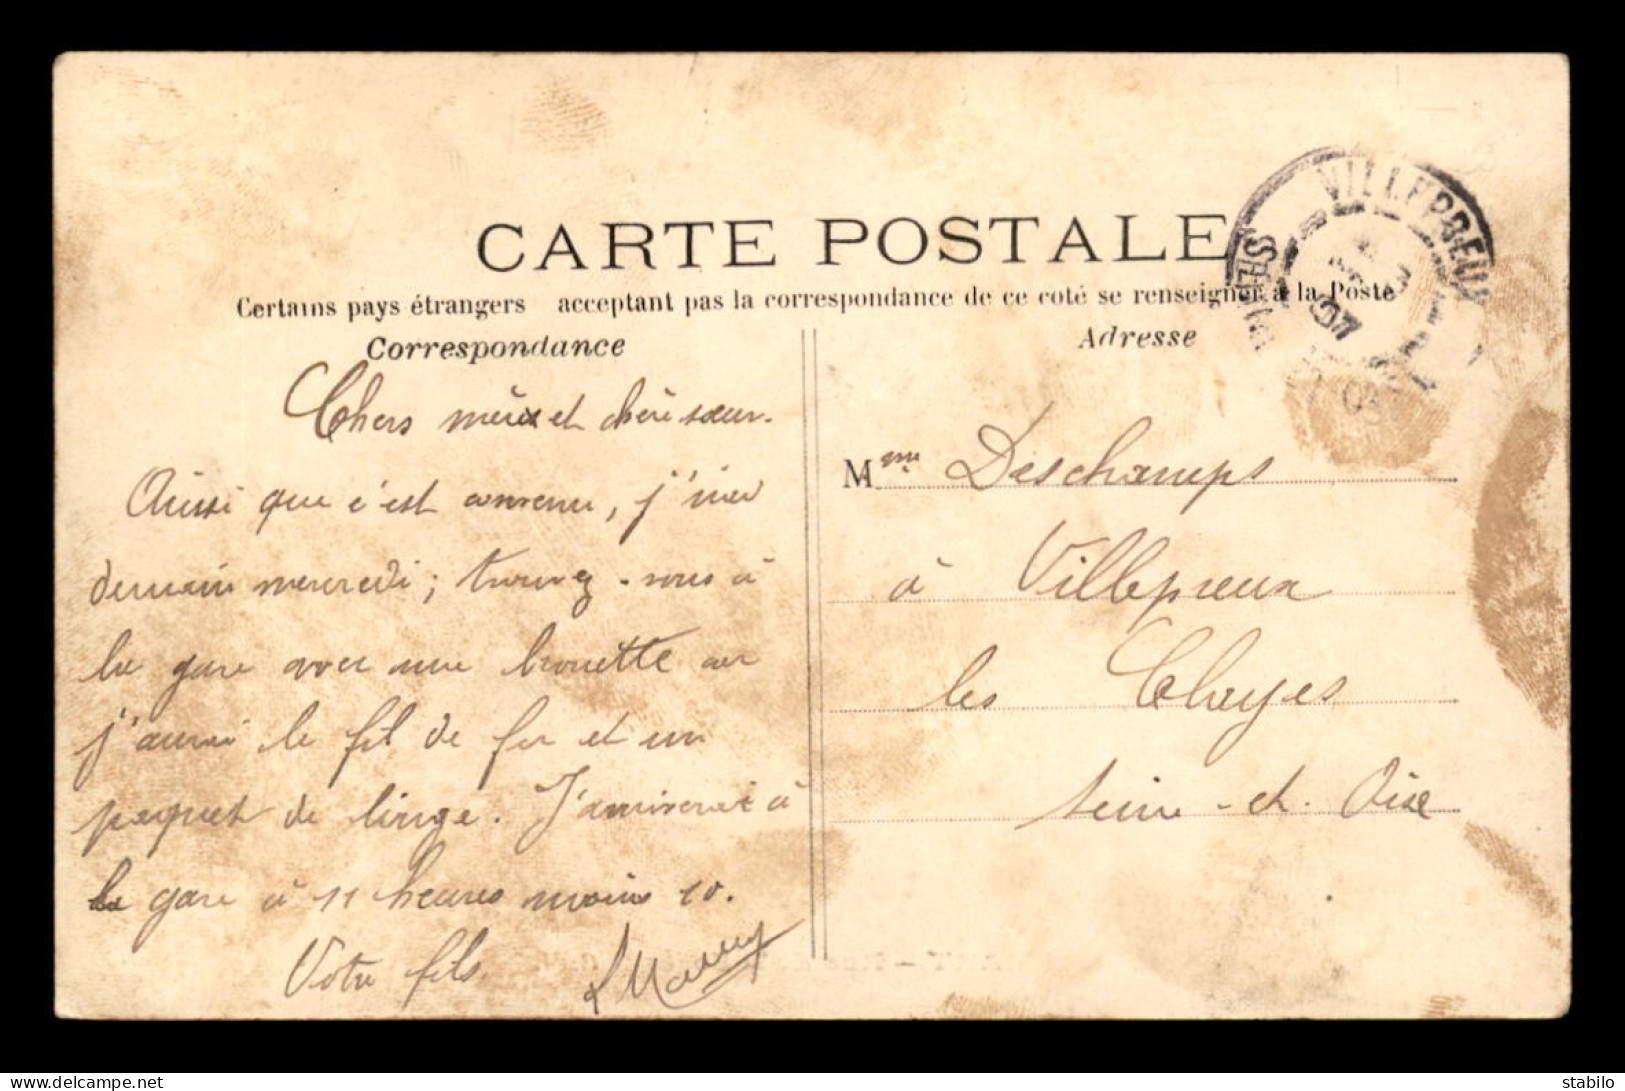 CARTE POSTALE
Certains pays étrangers acceptant pas la correspondance de ce coté se renseigner à la Poste
Correspondance
Adresse
VILLEPREUX
07
Chers mère et chère sœur.
Aussi que c'est convenu, j'irai
demain mercredi; trouvez-vous à
la gare avec une brouette car
j'aurai le fil de fer et un
paquet de linge. J'arriverai à
la gare à 11 heures moins 10.
Votre fils
Mme Deschamps
à Villepreux
les Clayes
Seine-et-Oise
Enlarge image
stabilo